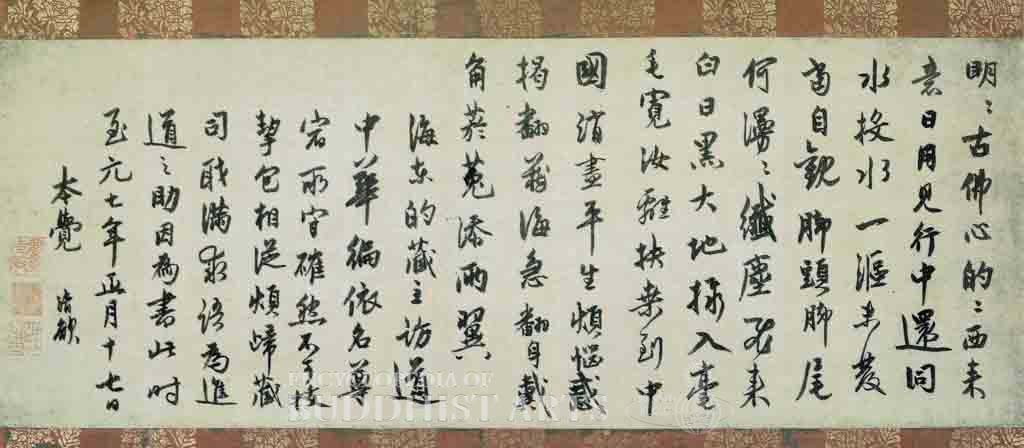 明〻古佛心的〻西来
意日用見行中還同
水投水一漚未發
當自觀脚頭脚尾
何漫〻纖塵来
白日黑大地撮入毫
毛寬汝離扶桒到中
國消盡平生煩惱惑
掲翻蒼海急翻身戴
角菸菟添兩翼
海東的藏主訪道
中華徧依名尊
宿所守確然不可拔
挈包相從煩歸藏
司職滿求語為進
道之助因為書此时
至元七年正月十七日
本覺 清欲
ENCYCLOPEDIA OF
BUDDHIST ARTS